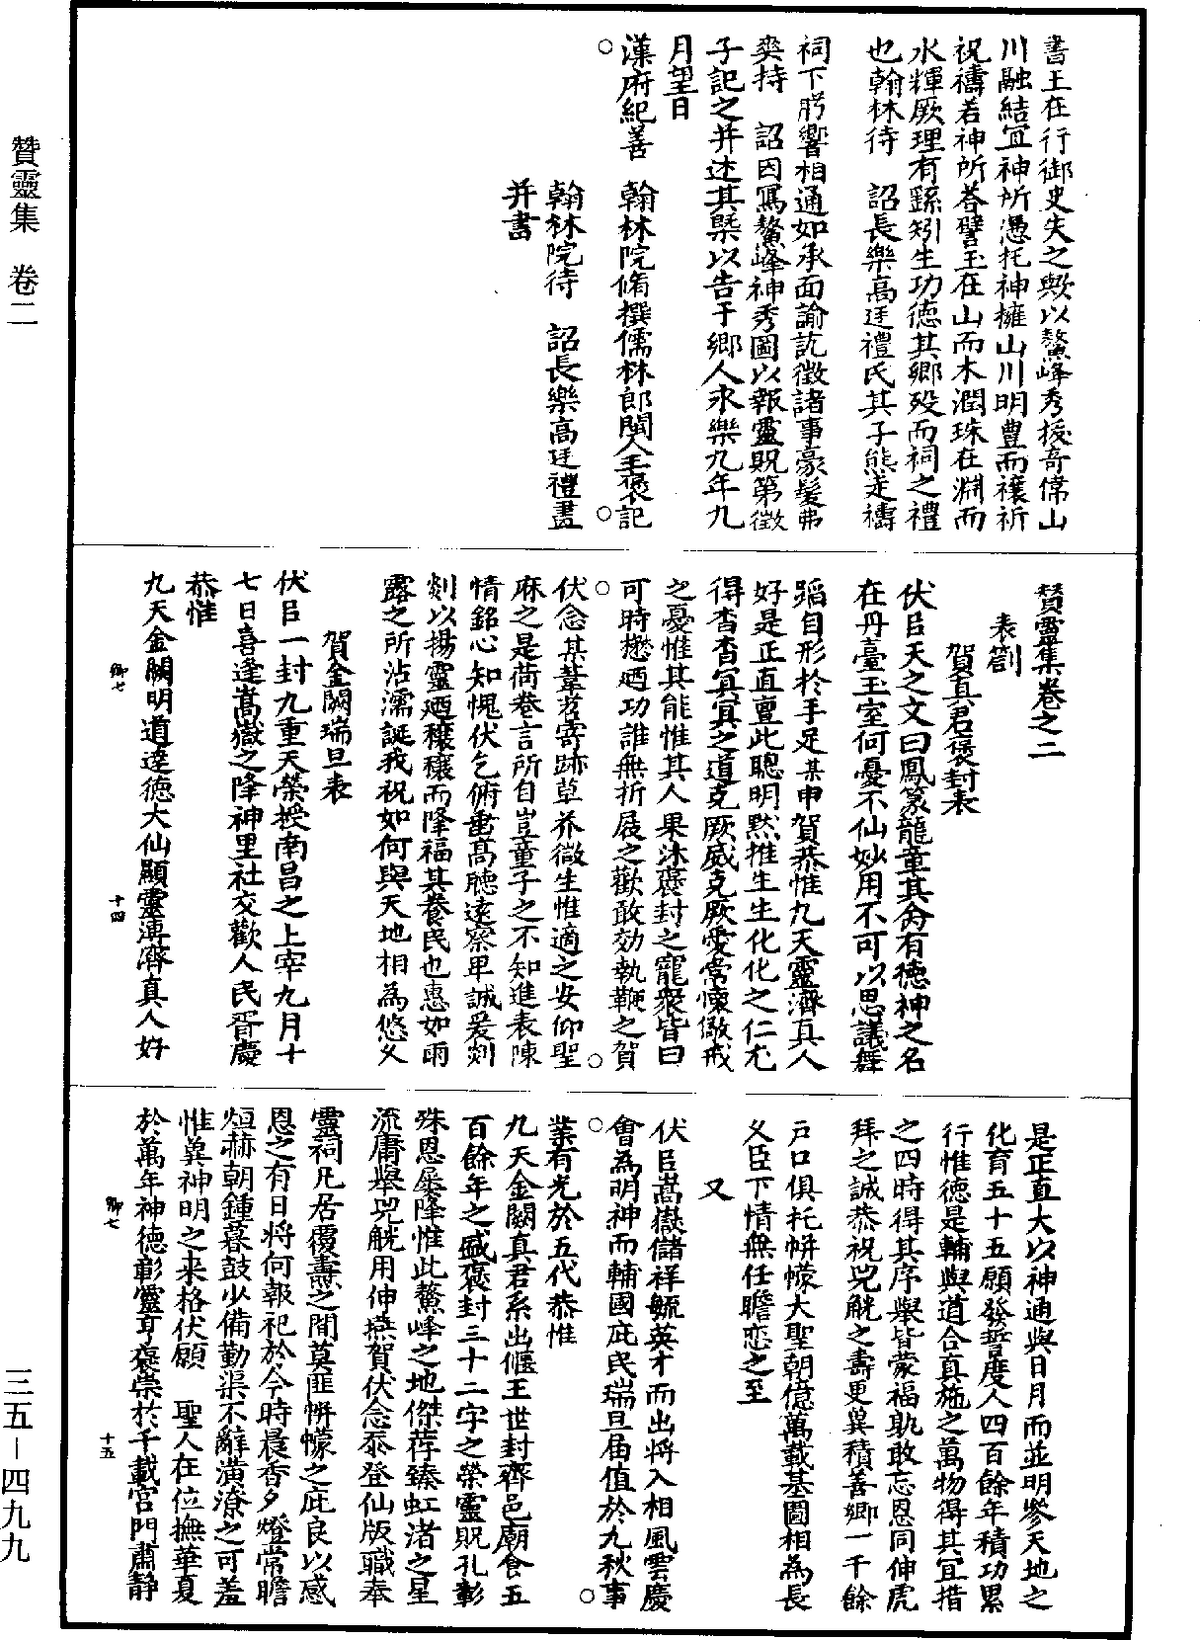 書王在行御史失之歟以鰲峰秀拔奇偉山
川融結宜神所憑托神擁山川明豊而禳祈
祝禱若神所荅譬玉在山而木潤珠在淵而
水輝厥理有繇矧生功德其鄉殁而祠之禮
也翰林待　詔長樂高廷禮氏其子熊走禱
祠下肹響相通如承面諭訖徵諸事豪髮弗
爽持　詔因寫鰲峰神秀圖以報靈貺第徵
子記之并述其槩以告于鄉人永樂九年九
月望日
漢府紀善　翰林院脩撰儒林郎閩人王褒記
○　○
翰林院待　詔長樂高廷禮畫
并書
賛靈集卷之二
表劄
賀真君褒封表
伏㠯天之文曰鳳篆龍章其侌有德神之名
在丹臺玉室何憂不仙妙用不可以思議舞
蹈自形於手足某申賀恭惟九天靈濟真人
好是正直亶此聰明黙推生生化化之仁尤
得杳杳冥冥之道克厥威克厥愛常懷儆戒
之憂惟其能惟其人果沐褒封之寵衆皆曰
可時懋廼功誰無折屐之歡敢効執鞭之賀
○　○
伏念某葦茗寄跡草芥微生惟適之安仰聖
庥之是荷巻言所自豈童子之不知進表陳
情銘心知愧伏乞俯垂髙聽逺察卑誠爰剡
剡以揚靈廼穰穰而降福其養民也惠如雨
露之所沾濡誕我祝如何與天地相為悠久
賀金闕瑞旦表
伏㠯一封九重天榮授南昌之上宰九月十
七日喜逢嵩嶽之降神里社交歡人民胥慶
恭惟
九天金闕明道達德大仙顯靈溥濟真人好
卿七
十四
是正直大以神通與日月而並明參天地之
化育五十五願發誓度人四百餘年積功累
行惟德是輔與道合真施之萬物得其宜措
之四時得其序舉皆蒙福孰敢忘恩同伸虎
拜之誠恭祝兕觥之壽更冀積善鄉一千餘
戶口俱托帡幪大聖朝億萬載基圖相為長
久臣下情無任瞻恋之至
又
伏㠯嵩嶽儲祥毓英才而出將入相風雲慶
會為明神而輔國庇民瑞旦届值於九秋事
○　○
業有光於五代恭惟
九天金闕真君系出偃王世封齊邑廟食五
百餘年之盛褒封三十二字之榮靈貺孔彰
殊恩屢降惟此鰲峰之地傑荐臻虹渚之星
流庸舉兕觥用伸燕賀伏念忝登仙版職奉
靈祠凡居覆燾之間莫匪帡幪之庇良以感
恩之有日將何報祀於今時晨香夕燈常瞻
烜赫朝鍾暮鼓少備勤渠不辭潢潦之可羞
惟冀神明之来格伏願　聖人在位撫華夏
於萬年神德彰靈享褒崇於千載宮門肅静
卿七
十五
贊靈集　卷二
三五－四九九